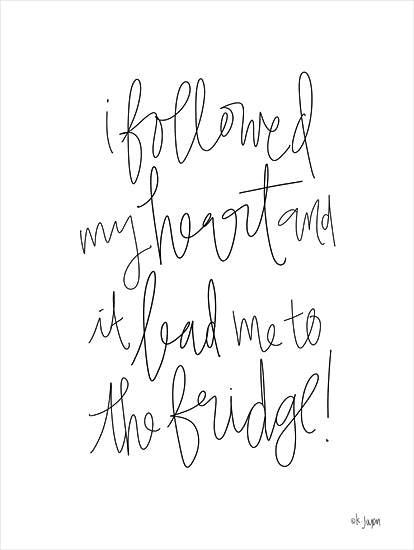 i followed
my heart and
it lead me to
the fridge!